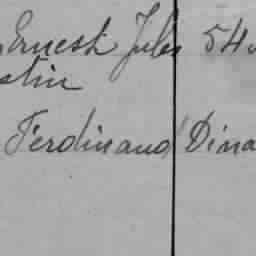 Ernest Jules 54
stin
Ferdinand Dina